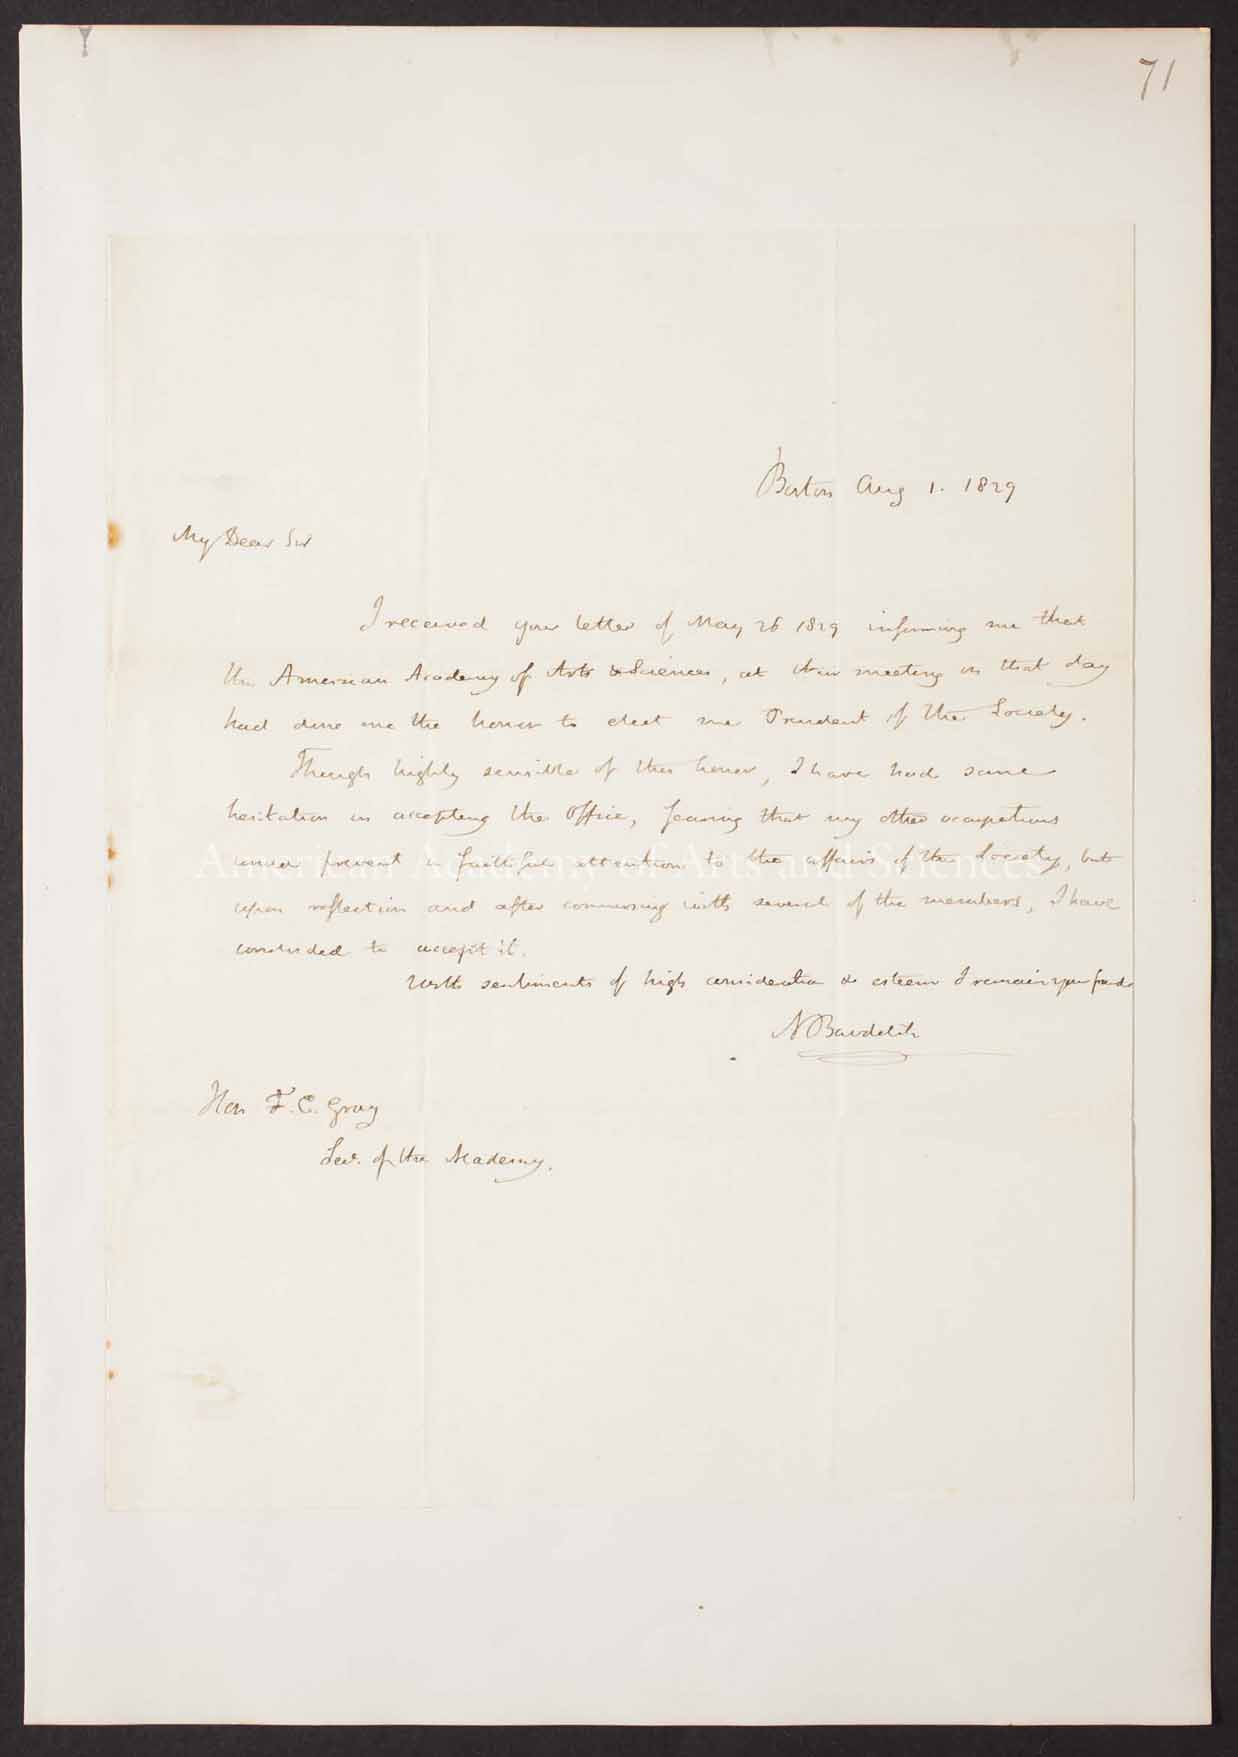 71
Boston Aug 1. 1829
My Dear Sir
I received your letter of May 26 1829 informing me that
the American Academy of Arts & Sciences, at their meeting on that day
had done me the honor to elect me President of the Society.
Though highly sensible of this honor, I have had some
hesitation in accepting the Office, fearing that my other occupations
would prevent a faithful attention to the affairs of the Society, but
American Academy of Arts and Sciences
upon reflection and after conversing with several of the members, I have
concluded to accept it.
With sentiments of high consideration & esteem I remain your friend
N Bowditch
Hon F. C. Gray
Sec. of the Academy.